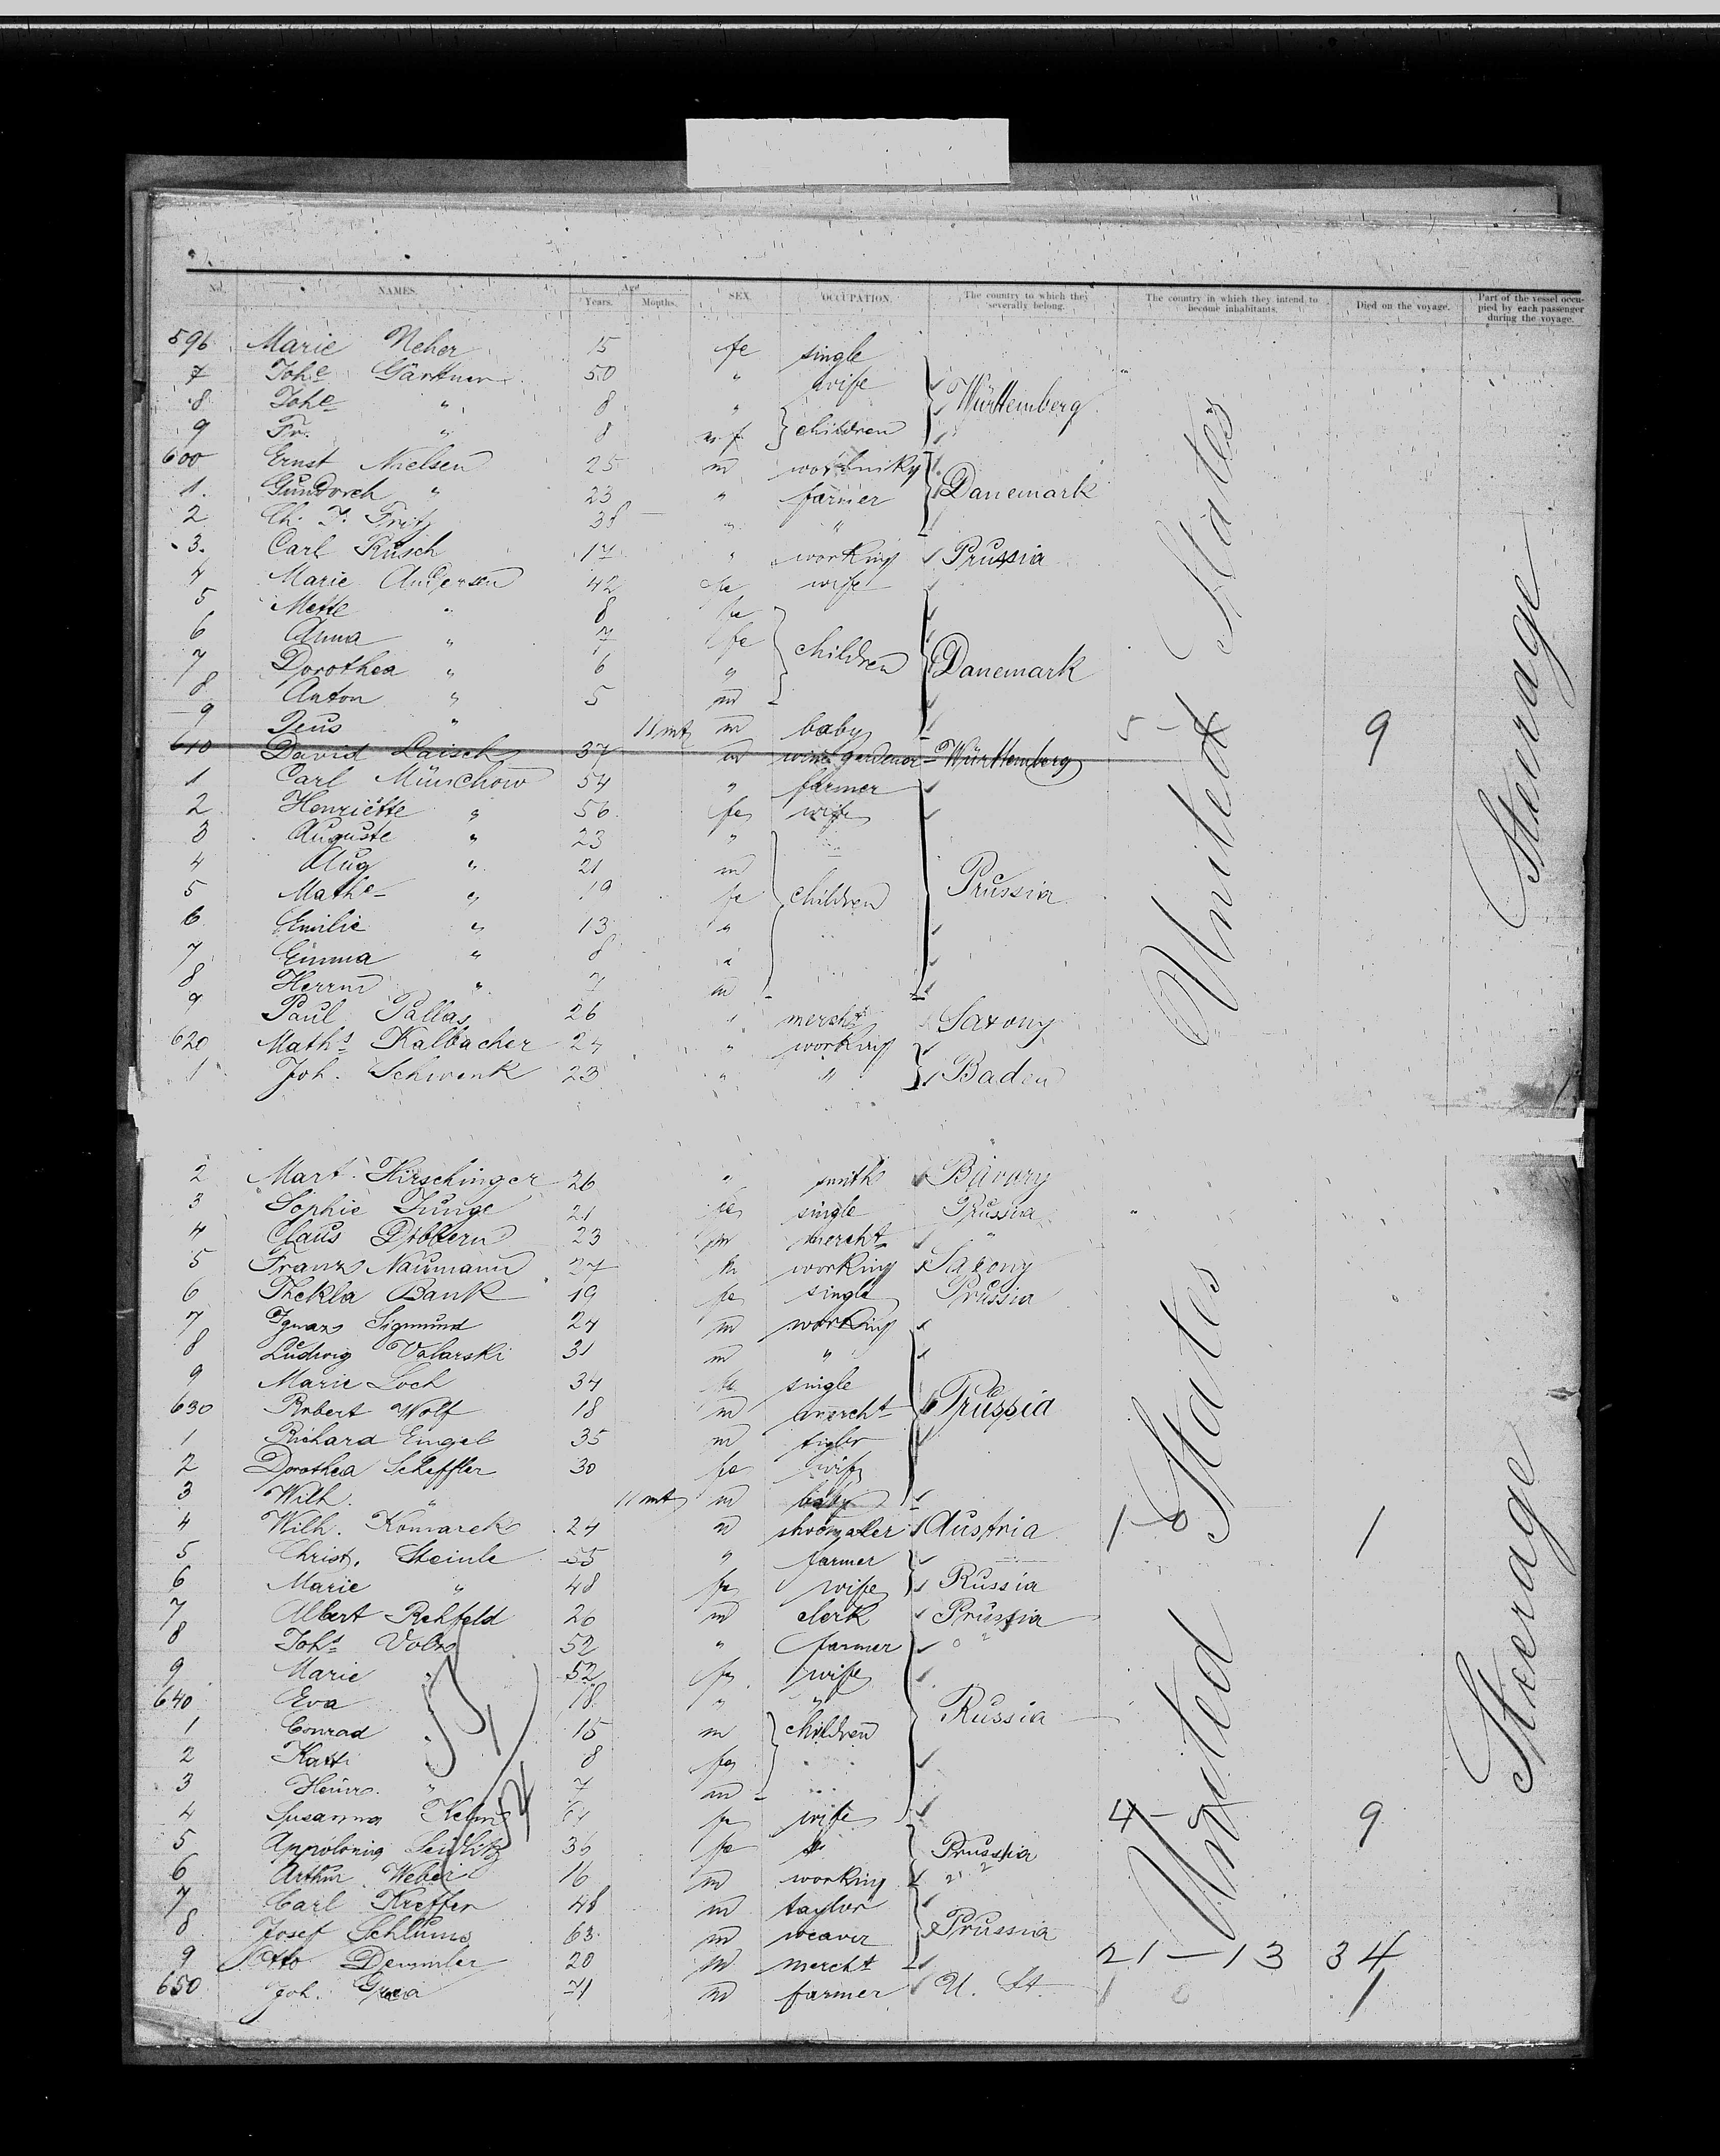 No. NAMES. Age Years. Months. SEX. OCCUPATION. The country to which they severally belong. The country in which they intend to become inhabitants. Died on the voyage. Part of the vessel occupied by each passenger during the voyage.
596 Marie Neher 15 fe single
7 Johe Gärttner 50 " wife
8 Johe " 8 " children Württemberg
9 Fr. " 8 m. f.
600 Ernst Nielsen 25 m
1. Gundorch " 23 " farmer Danemark
2 Ch. F. Fritz 38 " "
3. Carl Rusch 17 " working Prussia
4 Marie Andersen 42 fe wife
5 Mette " 8 fe
6 Anna " 7 fe children
7 Dorothea " 6 " Danemark
8 Anton " 5 m
9 Jens " 11 mt m baby 5 - 9
610 David Laisch 37 m wine gardenor Württemberg
1 Carl Münchow 54 " farmer
2 Henriette " 56 fe wife
3 Auguste " 23 "
4 Aug " 21 m
5 Mathe " 19 fe children Prussia
6 Emilie " 13 "
7 Emma " 8 "
8 Herrm " 7 m
9 Paul Pallas 26 " mercht Saxony
620 Maths Kalbacher 24 " working
1 Joh. Schwenk 23 " " Baden
United States
Steerage
2 Mart. Hirschinger 26 " smith Bavary
3 Sophie Junge 21 fe single Prussia
4 Claus 23 m mercht "
5 Franz Naumann 27 m working Saxony
6 Thekla Bank 19 fe single Prussia
7 Ignaz Sigmund 24 m working
8 Ludwig Valarski 31 m "
9 Marie Loch 34 fe single
630 Robert Wolf 18 m mercht Prussia
1 Richard Engel 35 m
2 Dorothea Scheffler 30 fe wife
3 Wilh. " 11 mt m baby
4 Wilh. Komarek 24 m shoemaker Austria 1 0 1
5 Christ. Steinle 55 " farmer
6 Marie " 48 fe wife Russia
7 Albert Rehfeld 26 m clerk Prussia
8 Johs Volz 52 " farmer
9 Marie " 52 fe wife
640 Eva 18 " " Russia
1 Conrad 15 m children
2 Kath 8 fe
3 Heinr. " 7 m
4 Susanna fe wife 4 - 9
5 Appolonia Seidlitz 36 fe Prussia
6 Arthur Weber 16 m working
7 Carl Kreffer 48 m taylor
8 Josef Schlums 63 m weaver Prussia
9 Otto Demmler 20 m mercht 21 - 13 34
650 Joh. m farmer U. St. 1 0 1
United States
Steerage